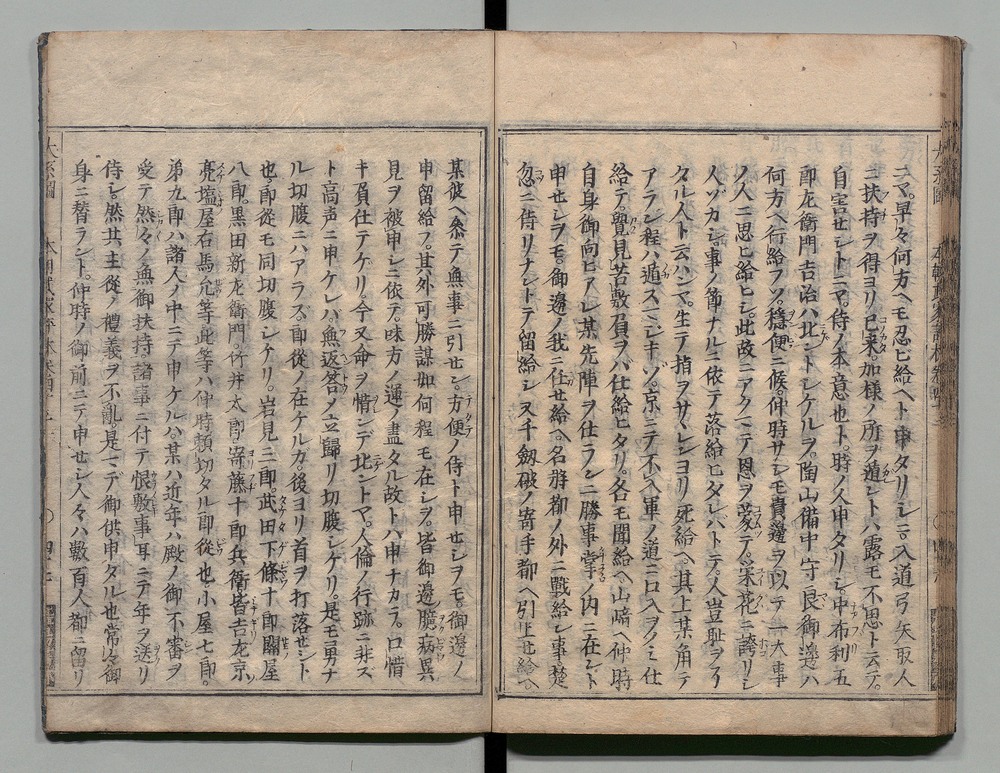 ニマ。早々何方ヘモ忍ビ給ヘト申タリシニ。入道弓矢取人
ニ扶持ヲ得ヨリ已来。加様ノ所ヲ遁レントハ露モ不思ト云テ。
自害セントニマ。侍ノ本意也ト。時ノ人申タリシ。中布利五
郎左衛門吉治ハ北ントシケルヲ。陶山備中守良御邊ハ
何方ヘ行給フソ。穏便ニ候。仲時サシモ貴邊ヲ以テ一大事
ノ人ニ思ヒ給ヒシ。此故ニアクマテ恩ヲ蒙テ。栄花ニ誇リシ
人ゾカシ。事ノ節ナルニ依テ落給ヒタレハトテ人豈耻ヲシ
タル人ト云ハンマ。生テ指ヲサヽレンヨリ死給ヘ。其上某角テ
アラン程ハ遁スマシキゾ。京ニテ不入軍ノ道ニ口入ヲノミ仕
給テ。覺見苦敷負ヲバ仕給ヒタリ。各モ聞給ヘ山崎ヘ仲時
自身御向ヒアレ某先陣ヲ仕ラン。一勝事掌ノ内ニ在シト
申セシヲモ。御邊ノ我ニ任セ給ヘ。名越都ノ外ニ戰給シ事楚
忽ニ侍リナントテ留給シ。又千劔破ノ寄手都ヘ引上セ給ヘ
某彼ヘ参テ無事ニ引セン。方便ノ侍ト申セシヲモ。御邊ノ
申留給フ。其外可勝謀如何程モ在シヲ。皆御邊臆病異
見ヲ被申シニ依テ。味方ノ運ノ盡タル故トハ申ナカラ。口惜
キ負仕テケリ。今又命ヲ惜ンデ北ントマ。人倫ノ行跡ニ非ズ
ト高声ニ申ケレバ。無返答ノ立歸リ切腹シケリ。是モ勇ナ
ル切腹ニハアラズ。郎從ノ在ケルカ。後ヨリ首ヲ打落セシト
也。郎從モ同切腹シケリ。岩見三郎。武田下條十郎關屋
八郎。黒田新左衛門。竹井太郎寄藤十郎兵衛皆吉左京
亮塩屋右馬允等此等ハ仲時頼切タル郎從也。小屋七郎。
弟九郎ハ諸人ノ中ニテ申ケルハ。某ハ近年ハ殿ノ御不審ヲ
受テ然々ノ無御扶持諸事ニ付テ恨敷事耳ニテ年ヲ送リ
侍シ。然共主從ノ禮義ヲ不亂。是マデ御供申タル也常々御
身ニ替ラント。仲時ノ御前ニテ申セシ人々ハ數百人都ニ留リ